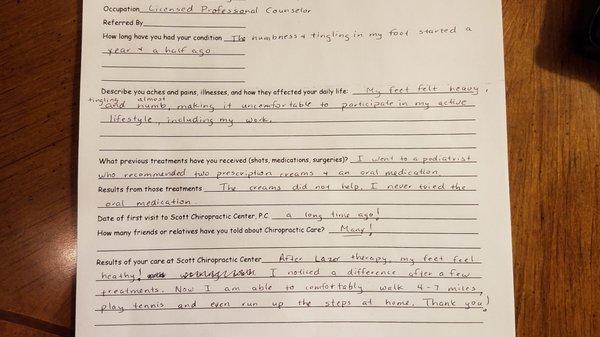 Occupation Licensed Professional Counselor
Referred By
How long have you had your condition The numbness & tingling in my foot started a
year & a half ago
Describe you aches and pains, illnesses, and how they affected your daily life: My feet felt heavy,
tingling almost
and numb, making it uncomfortable to participate in my active
lifestyle, including my work.
What previous treatments have you received (shots, medications, surgeries)? I went to a podiatrist
who recommended two prescription creams & an oral medication
Results from those treatments The creams did not help. I never tried the
oral medication.
Date of first visit to Scott Chiropractic Center, P.C. a long time ago!
How many friends or relatives have you told about Chiropractic Care? Many!
Results of your care at Scott Chiropractic Center After Lazer therapy, my feet feel
heathy! I noticed a difference after a few
treatments. Now I am able to comfortably walk 4-7 miles,
play tennis and even run up the steps at home. Thank you!